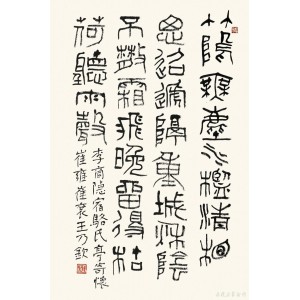 竹隖無塵水檻清相
思迢遞隔重城秋陰
不散霜飛晚留得枯
荷聽雨聲
李商隐宿駱氏亭寄懷
崔雍崔袞王乃欽